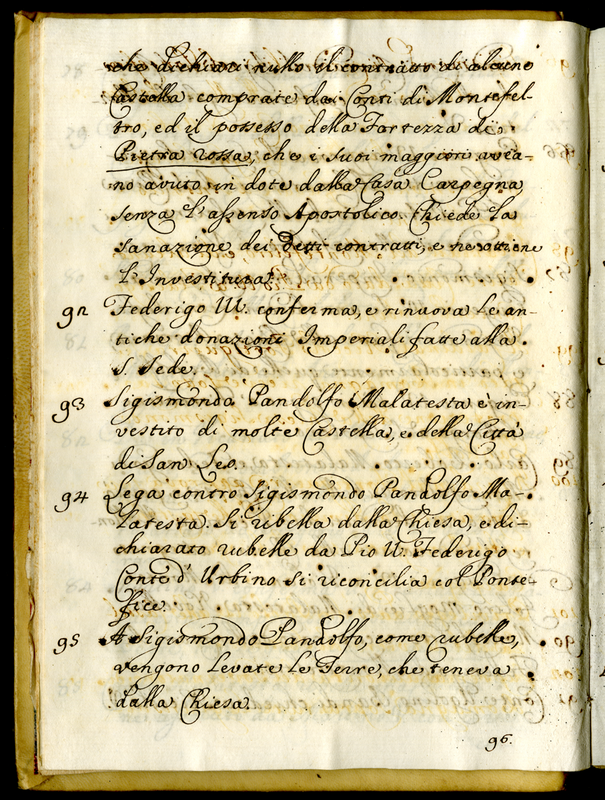 che dichiari nullo il contratto di alcune
Castella comprate dai Conti di Montefel-
tro, ed il possesso della Fortezza di
Pietra rossa, che i suoi maggiori avea-
no avuto in dote dalla Casa Carpegna
senza l'assenso Apostolico. Chiede la
sanazione dei detti contratti, e ne ottiene
l'Investitura.
92 Federigo III. conferma, e rinuova le an-
tiche donazioni Imperiali fatte alla
S. Sede.
93 Sigismondo Pandolfo Malatesta è in-
vestito di molte Castella, e della Città
di San Leo.
94 Lega contro Sigismondo Pandolfo Ma-
latesta. Si ribella dalla Chiesa, e di-
chiarato rubelle da Pio II. Federigo
Conte d'Urbino si riconcilia col Ponte-
fice.
95 A Sigismondo Pandolfo, come rubelle,
vengono levate le Terre, che teneva
dalla Chiesa.
96.